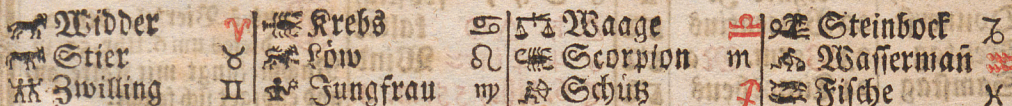 Widder ♈ Krebs ♋ Waage ♎ Steinbock ♑
Stier ♉ Löw ♌ Scorpion ♏ Wasserman̄ ♒
Zwilling ♊ Jungfrau ♍ Schütz ♐ Fische ♓